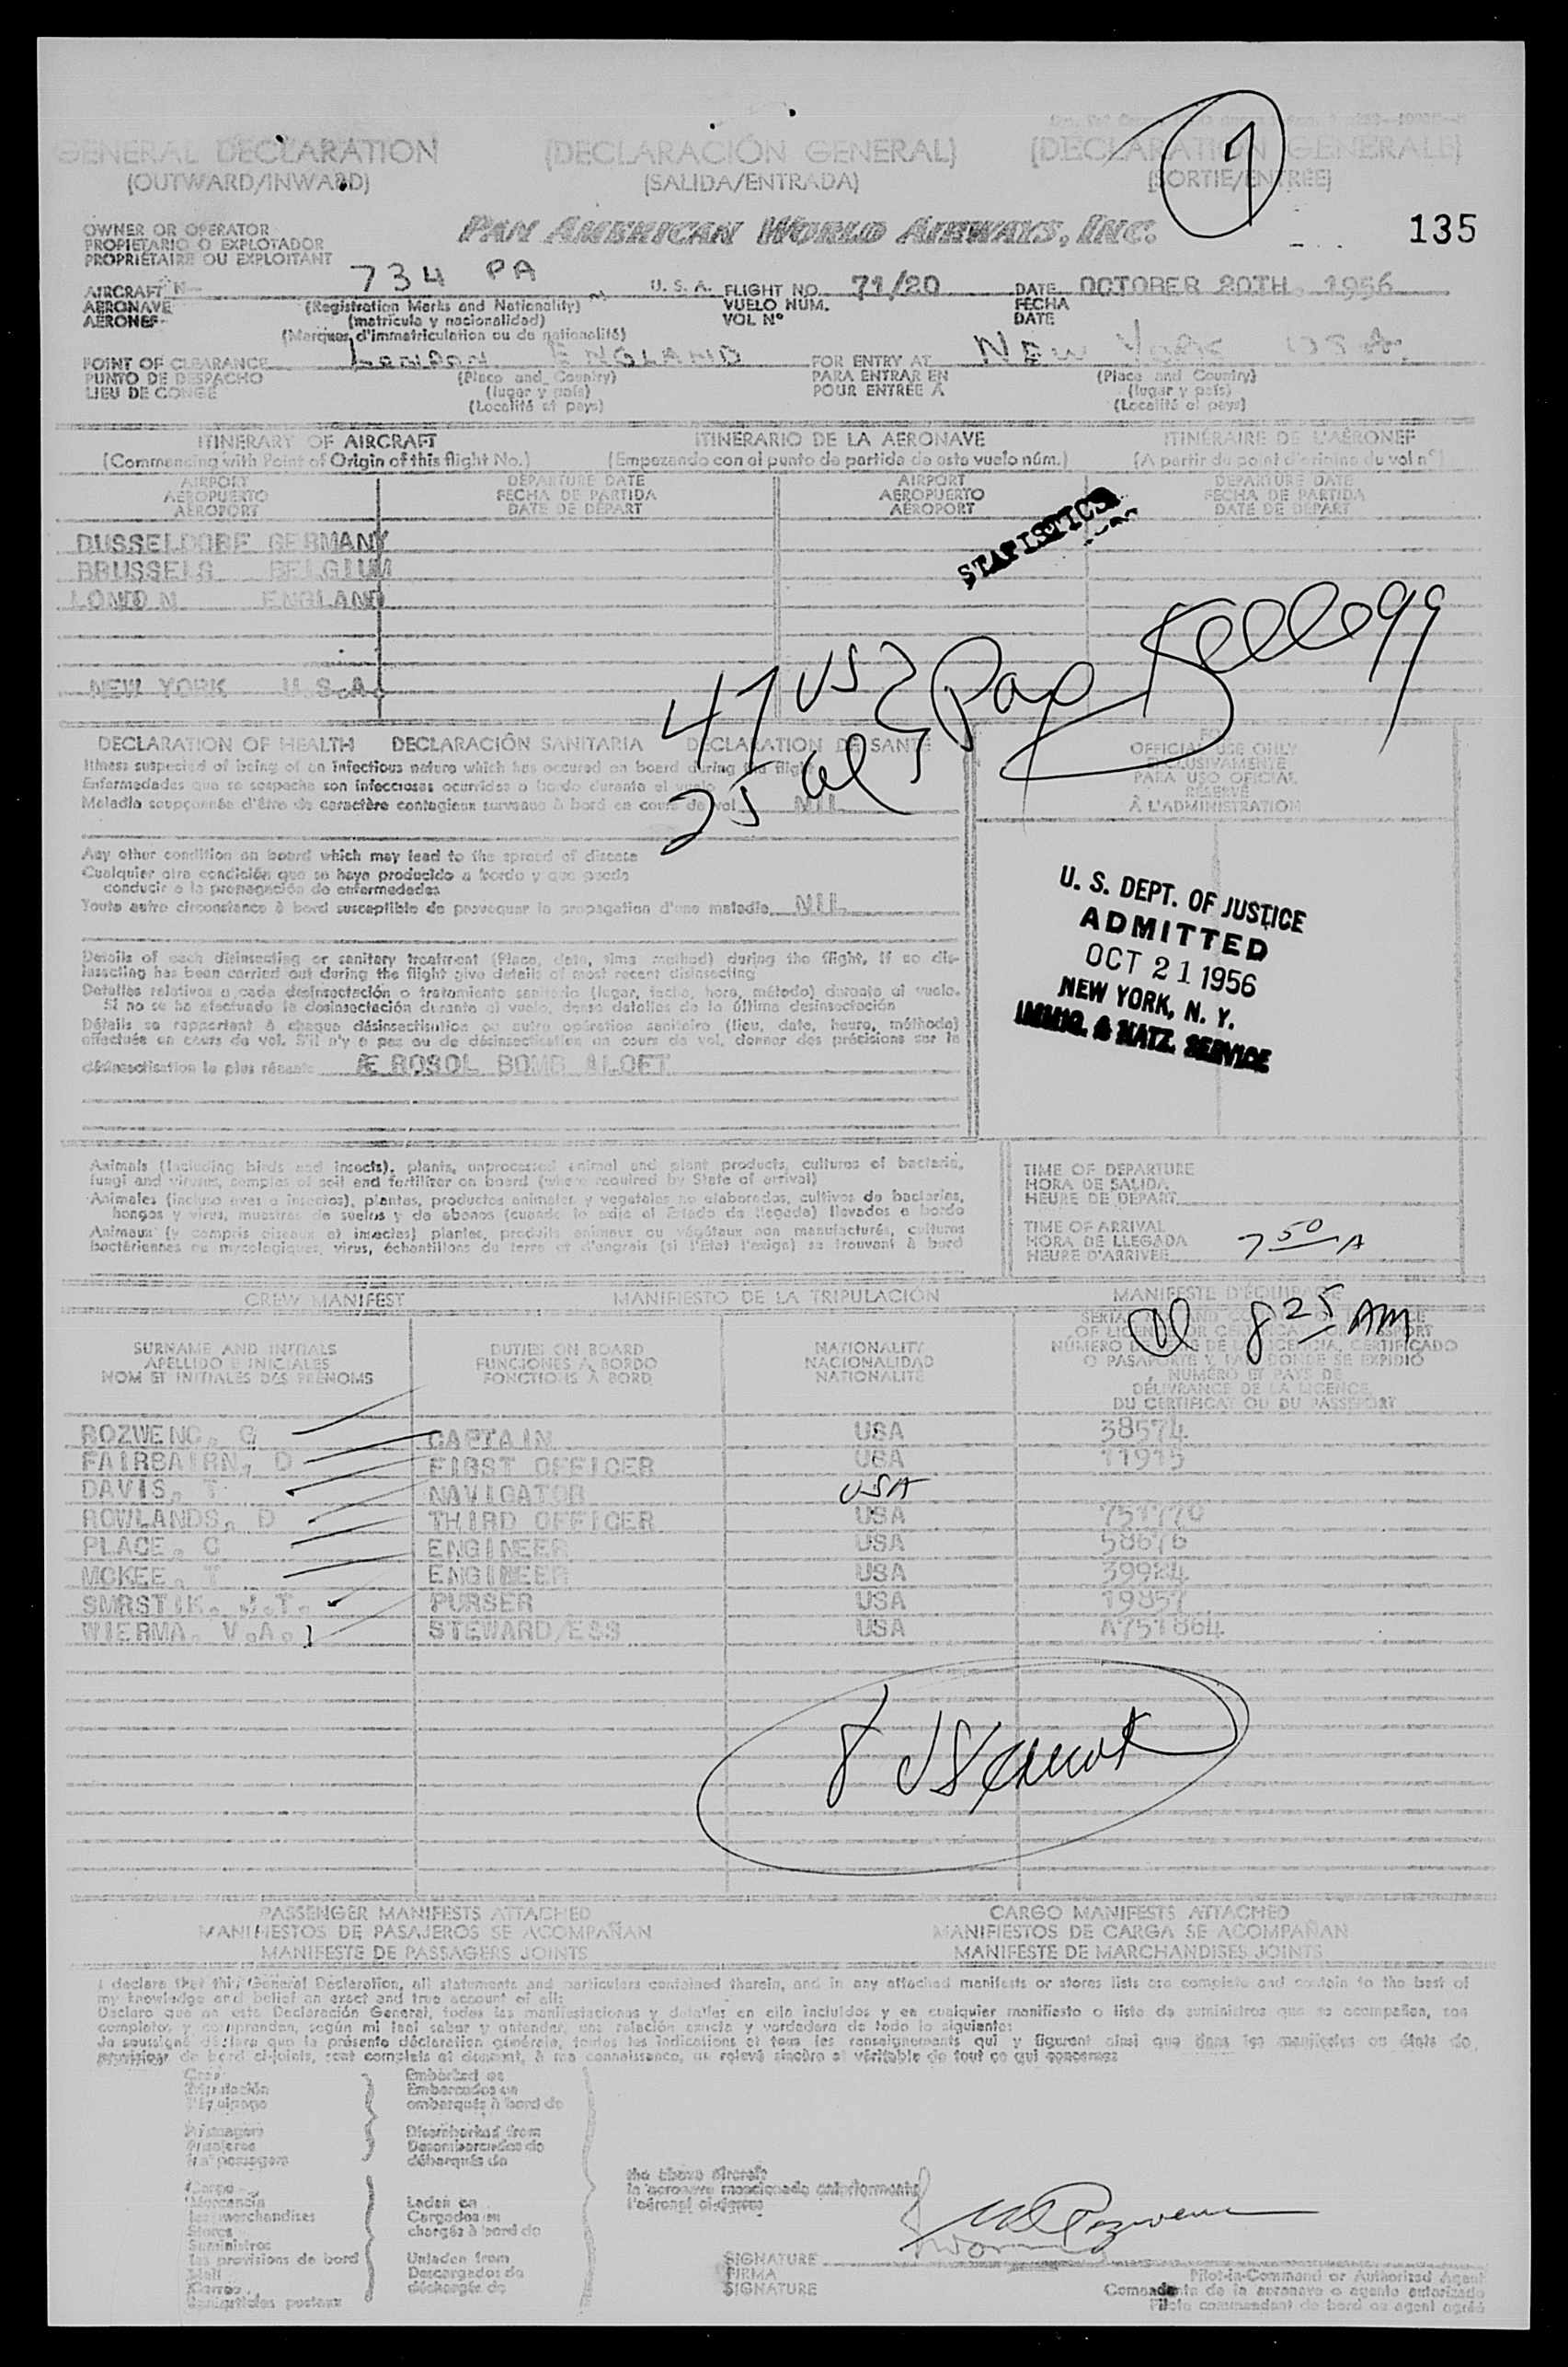 1
GENERAL DECLARATION (DECLARACIÓN GENERAL) (DECLARATION GENERALE)
(OUTWARD/INWARD) (SALIDA/ENTRADA) (SORTIE/ENTRÉE)
135
OWNER OR OPERATOR
PROPIETARIO O EXPLOTADOR
PROPRIÉTAIRE OU EXPLOITANT
PAN AMERICAN WORLD AIRWAYS, INC.
AIRCRAFT N 734 PA U. S. A. FLIGHT NO. 71/20 DATE OCTOBER 20TH, 1956
AERONAVE (Registration Marks and Nationality) VUELO NÚM. FECHA
AÉRONEF (matrícula y nacionalidad) VOL Nº DATE
(Marques d'immatriculation ou de nationalité)
POINT OF CLEARANCE LONDON ENGLAND FOR ENTRY AT NEW YORK USA.
PUNTO DE DESPACHO (Place and Country) PARA ENTRAR EN (Place and Country)
LIEU DE CONGÉ (lugar y país) POUR ENTRÉE À (lugar y país)
(Localité et pays) (Localité et pays)
ITINERARY OF AIRCRAFT ITINERARIO DE LA AERONAVE ITINÉRAIRE DE L'AÉRONEF
(Commencing with Point of Origin of this flight No.) (Empezando con el punto de partida de este vuelo núm.) (A partir du point d'origine du vol nº)
AIRPORT DEPARTURE DATE AIRPORT DEPARTURE DATE
AEROPUERTO FECHA DE PARTIDA AEROPUERTO FECHA DE PARTIDA
AÉROPORT DATE DE DÉPART AÉROPORT DATE DE DÉPART
STATISTICS
DUSSELDORF GERMANY
BRUSSELS BELGIUM
LOND N ENGLAND
NEW YORK U.S.A.
47 US Pax Kelleogg
25 al
DECLARATION OF HEALTH DECLARACIÓN SANITARIA DÉCLARATION DE SANTÉ
Illness suspected of being of an infectious nature which has occured on board during the flight
Enfermedades que se sospecha son infecciosas ocurridas a bordo durante el vuelo
Maladie soupçonnée d'être de caractère contagieux survenue à bord en cours de vol NIL
FOR
OFFICIAL USE ONLY
EXCLUSIVAMENTE
PARA USO OFICIAL
RÉSERVÉ
À L'ADMINISTRATION
Any other condition on board which may lead to the spread of disease
Cualquier otra condición que se haya producido a bordo y que pueda
conducir a la propagación de enfermedades
Toute autre circonstance à bord susceptible de provoquer la propagation d'une maladie NIL
U. S. DEPT. OF JUSTICE
ADMITTED
OCT 21 1956
NEW YORK, N. Y.
IMMIG. & NATZ. SERVICE
Details of each disinsecting or sanitary treatment (Place, date, time method) during the flight, If no dis-
insecting has been carried out during the flight give details of most recent disinsecting
Detalles relativos a cada desinsectación o tratamiento sanitario (lugar, fecha, hora, método) durante el vuelo.
Si no se ha efectuado la desinsectación durante el vuelo, dense detalles de la última desinsectación
Détails se rapportant à chaque désinsectisation ou autre opération sanitaire (lieu, date, heure, méthode)
effectuée en cours de vol. S'il n'y a pas eu de désinsectisation en cours de vol, donner des précisions sur la
désinsectisation la plus récente ÆROSOL BOMB ALOFT
Animals (including birds and insects), plants, unprocessed animal and plant products, cultures of bacteria,
fungi and viruses, samples of soil and fertilizer on board (where required by State of arrival)
Animales (incluso aves e insectos), plantas, productos animales y vegetales no elaborados, cultivos de bacterias,
hongos y virus, muestras de suelos y de abonos (cuando lo exija el Estado de llegada) llevados a bordo
Animaux (y compris oiseaux et insectes) plantes, produits animaux ou végétaux non manufacturés, cultures
bactériennes ou mycologiques, virus, échantillons de terre et d'engrais (si l'État l'exige) se trouvant à bord
TIME OF DEPARTURE
HORA DE SALIDA
HEURE DE DÉPART
TIME OF ARRIVAL
HORA DE LLEGADA 7 50 A
HEURE D'ARRIVÉE
CREW MANIFEST MANIFIESTO DE LA TRIPULACIÓN MANIFESTE D'ÉQUIPAGE
8 25 AM
SURNAME AND INITIALS DUTIES ON BOARD NATIONALITY
APELLIDO E INICIALES FUNCIONES A BORDO NACIONALIDAD
NOM ET INITIALES DES PRÉNOMS FONCTIONS À BORD NATIONALITÉ
NÚMERO DE LA LICENCIA, CERTIFICADO
O PASAPORTE Y PAÍS DONDE SE EXPIDIÓ
NUMÉRO ET PAYS DE
DÉLIVRANCE DE LA LICENCE,
DU CERTIFICAT OU DU PASSEPORT
ROZWENC, G CAPTAIN USA 38574
FAIRBAIRN, D FIRST OFFICER USA 11915
DAVIS, T NAVIGATOR USA
ROWLANDS, D THIRD OFFICER USA 751770
PLACE, C ENGINEER USA 58676
MCKEE, T ENGINEER USA 39984
SMRSTIK, J.T. PURSER USA 19857
WIERMA, V.A. STEWARD/ESS USA A751664
8 US
PASSENGER MANIFESTS ATTACHED CARGO MANIFESTS ATTACHED
MANIFIESTOS DE PASAJEROS SE ACOMPAÑAN MANIFIESTOS DE CARGA SE ACOMPAÑAN
MANIFESTE DE PASSAGERS JOINTS MANIFESTE DE MARCHANDISES JOINTS
I declare that this General Declaration, all statements and particulars contained therein, and in any attached manifests or stores lists are complete and contain to the best of
my knowledge and belief an exact and true account of all:
Declaro que en esta Declaración General, todas las manifestaciones y detalles en ella incluidos y en cualquier manifiesto o lista de suministros que se acompañan, son
completos y comprenden, según mi leal saber y entender, una relación exacta y verdadera de todo lo siguiente:
Je soussigné déclare que la présente déclaration générale, toutes les indications et tous les renseignements qui y figurent ainsi que dans les manifestes ou états de
provisions de bord ci-joints, sont complets et donnent, à ma connaissance, un relevé sincère et véritable de tout ce qui concerne:
Crew Embarked on
Tripulación Embarcados en
l'équipage embarqués à bord de
Passengers Disembarked from
Pasajeros Desembarcados de
les passagers débarqués de
Cargo the above aircraft
Mercancía Laden on la aeronave mencionada anteriormente
les marchandises Cargados en l'aéronef ci-dessus
Stores chargés à bord de
Suministros
les provisions de bord Unladen from SIGNATURE
Mail Descargados de FIRMA Pilot-in-Command or Authorized Agent
Correo déchargés de SIGNATURE Comandante de la aeronave o agente autorizado
les articles postaux Pilote commandant de bord ou agent agréé